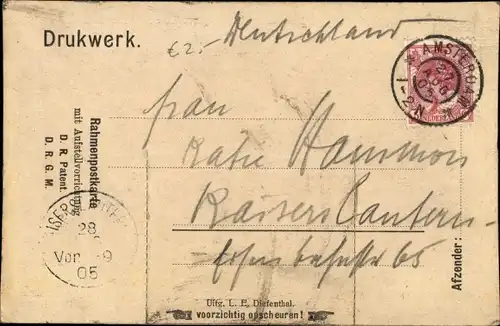 Drukwerk.
€ 2.-
Deutschland
AMSTERDAM
AUG
1-2N
Rahmenpostkarte
mit Aufstellvorrichtung
D. R. Patent.
D. R. G. M.
Frau
Käthe Hammon
Kaiserslautern
65
28
Vor 8-9
05
Afzender:
Uitg. L. E. Diefenthal.
voorzichtig opscheuren!